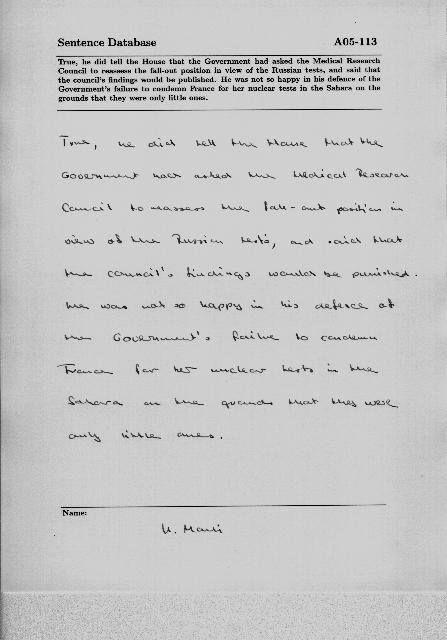 Sentence Database A05-113
True, he did tell the House that the Government had asked the Medical Research
Council to reassess the fall-out position in view of the Russian tests, and said that
the council's findings would be published. He was not so happy in his defence of the
Government's failure to condemn France for her nuclear tests in the Sahara on the
grounds that they were only little ones.
True, he did tell the House that the
Government had asked the Medical Research
Council to reassess the fall-out position in
view of the Russian tests, and said that
the council's findings would be punished.
He was not so happy in his defence of
the Government's failure to condemn
France for her nuclear tests in the
Sahara on the grounds that they were
only little ones.
Name: